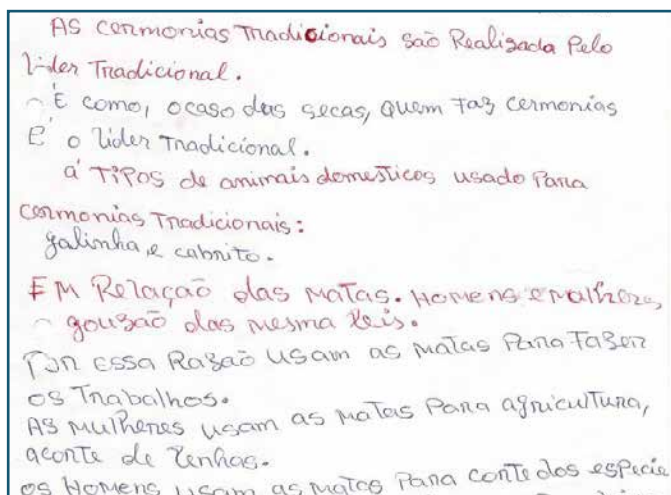 As cermonias Tradicionais são Realizada Pelo
lider Tradicional.
É como, o caso das secas, quem faz cermonias
É o lider Tradicional.
á Tipos de animais domesticos usado Para
cermonias Tradicionais:
galinha e cabrito.
Em Relação das matas. Homens e mulheres,
gousão das mesma leis.
Por essa Rasão usam as matas Para fazer
os Trabalhos.
As mulheres usam as matas Para agricultura,
aconte de lenhas.
os Homens usam as matas Para conte dos especie